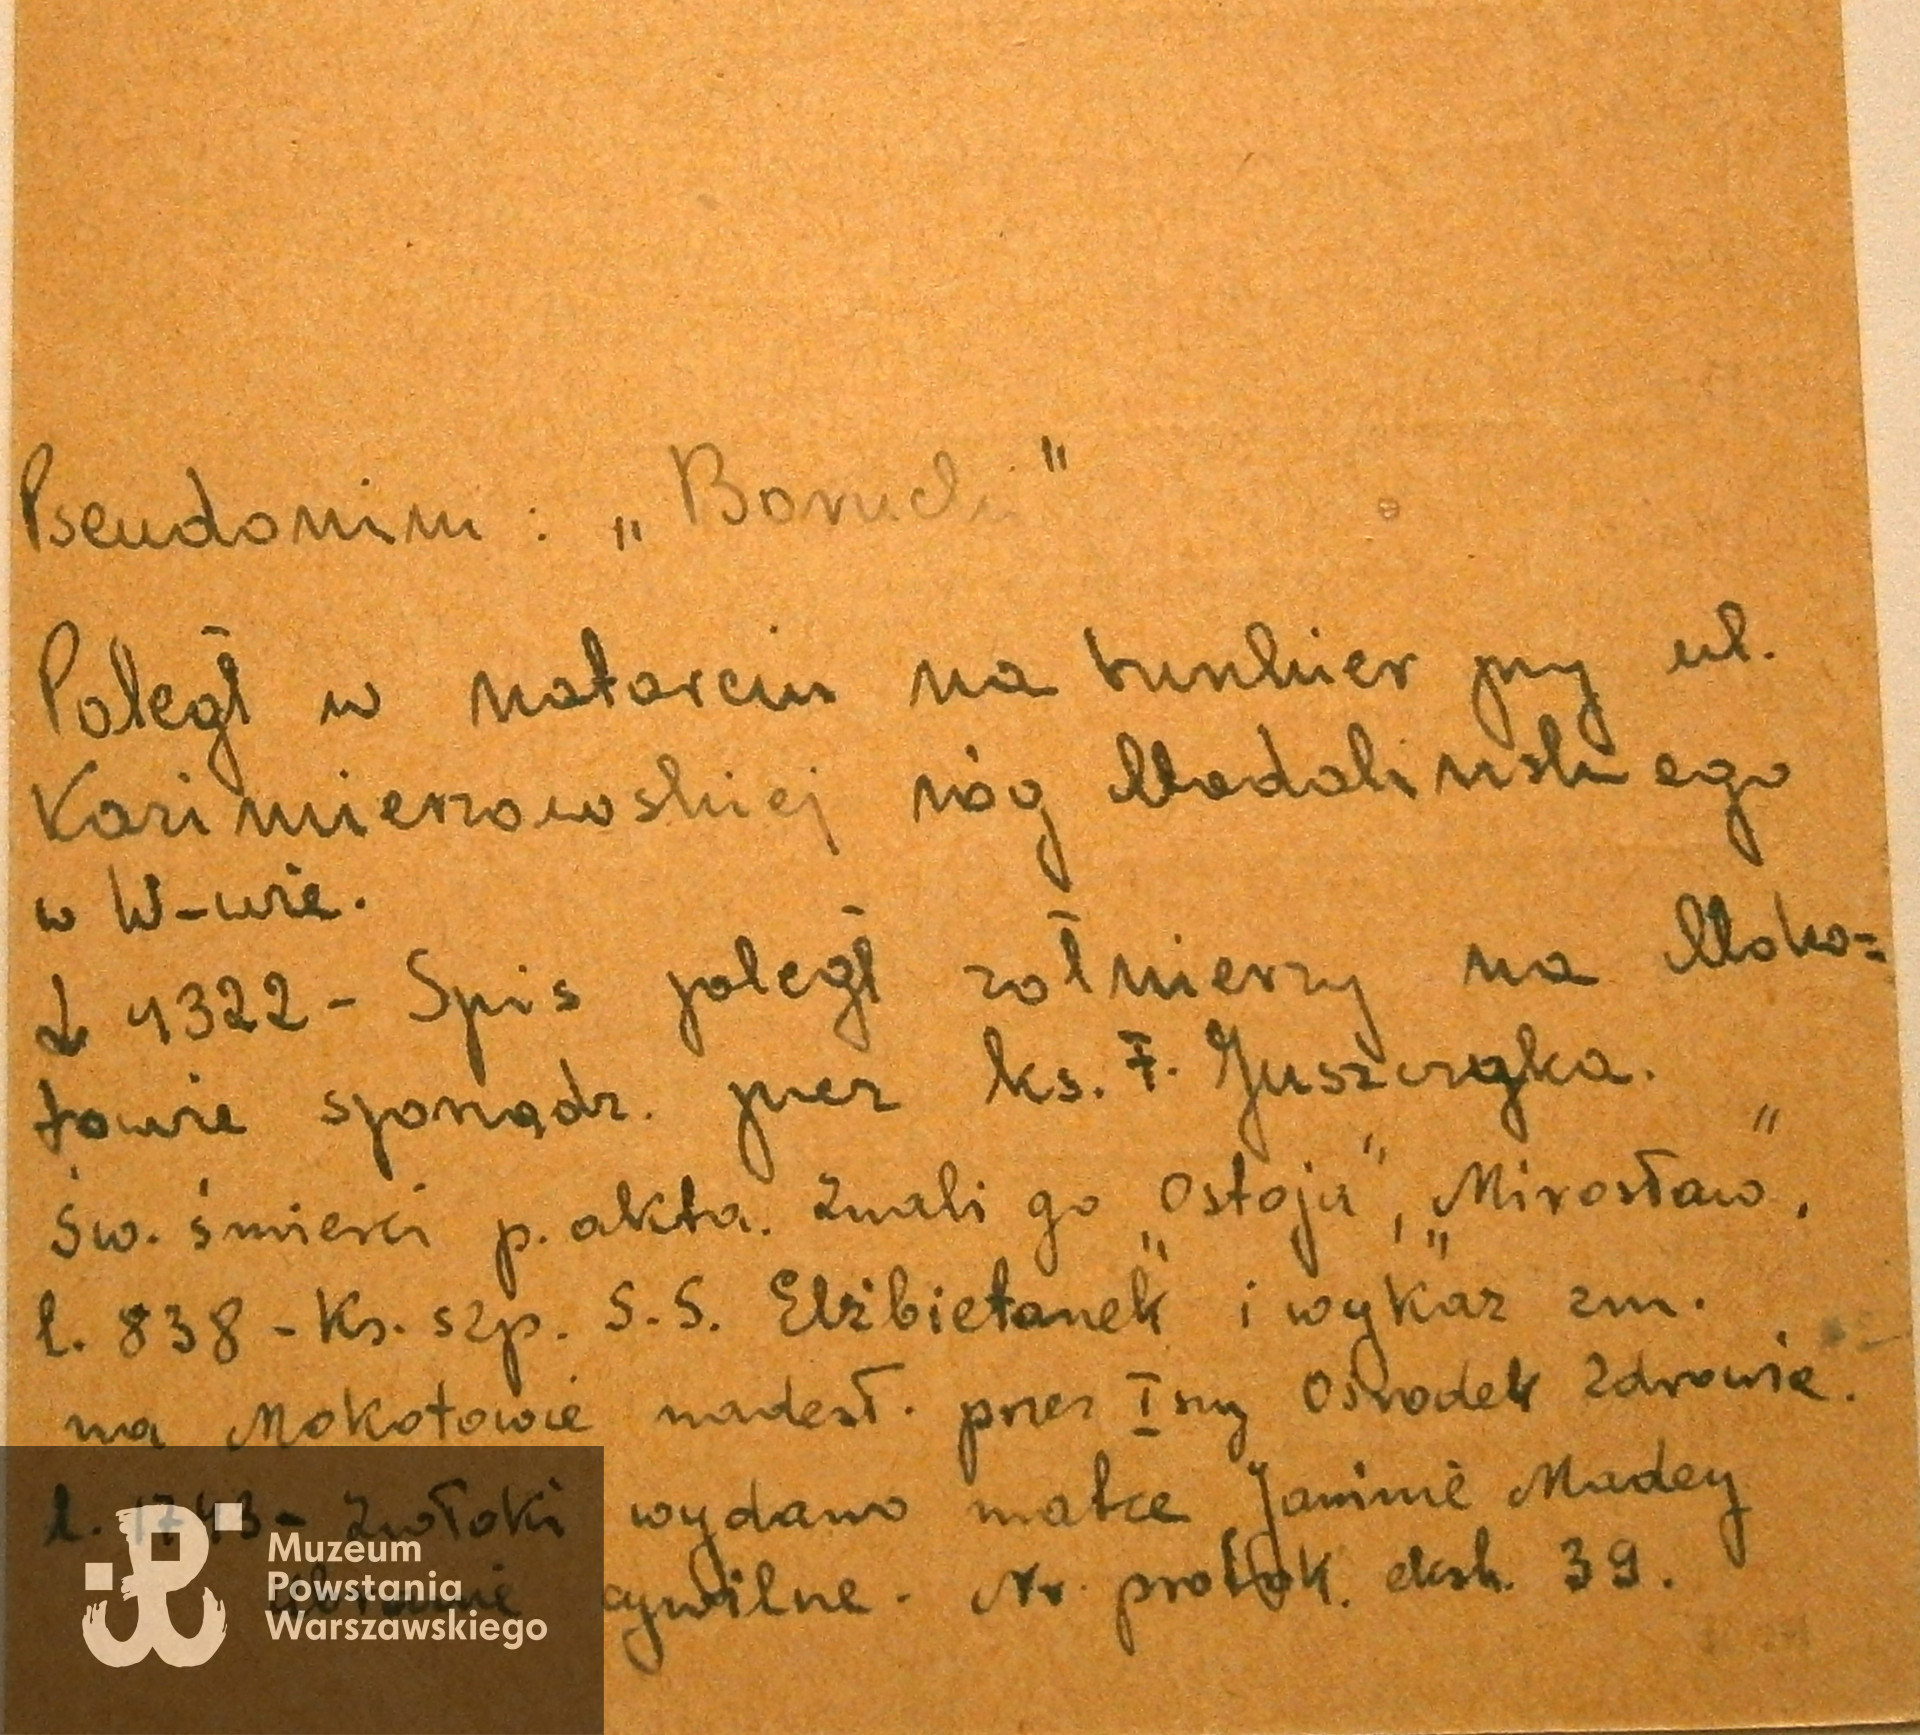 Pseudonim : „Boruch"
Poległ w natarciu na bunkier przy ul.
Kazimierzowskiej róg Madalińskiego
w W-wie.
Ł 1322 - Spis poległ żołnierzy na Moko=
towie sporządz. przez ks. F. Juszczyka.
Św. śmierci p. akta. Znali go „Ostoja", „Mirosław",
l. 838 - Ks. szp. S.S. „Elżbietanek" i wykaz zm.
na Mokotowie nadesł. przez I szy Ośrodek Zdrowia.
l. 1743 - Zwłoki wydano matce Janinie Madey
Ubranie cywilne. Nr. protok. eksh. 39.
Muzeum
Powstania
Warszawskiego